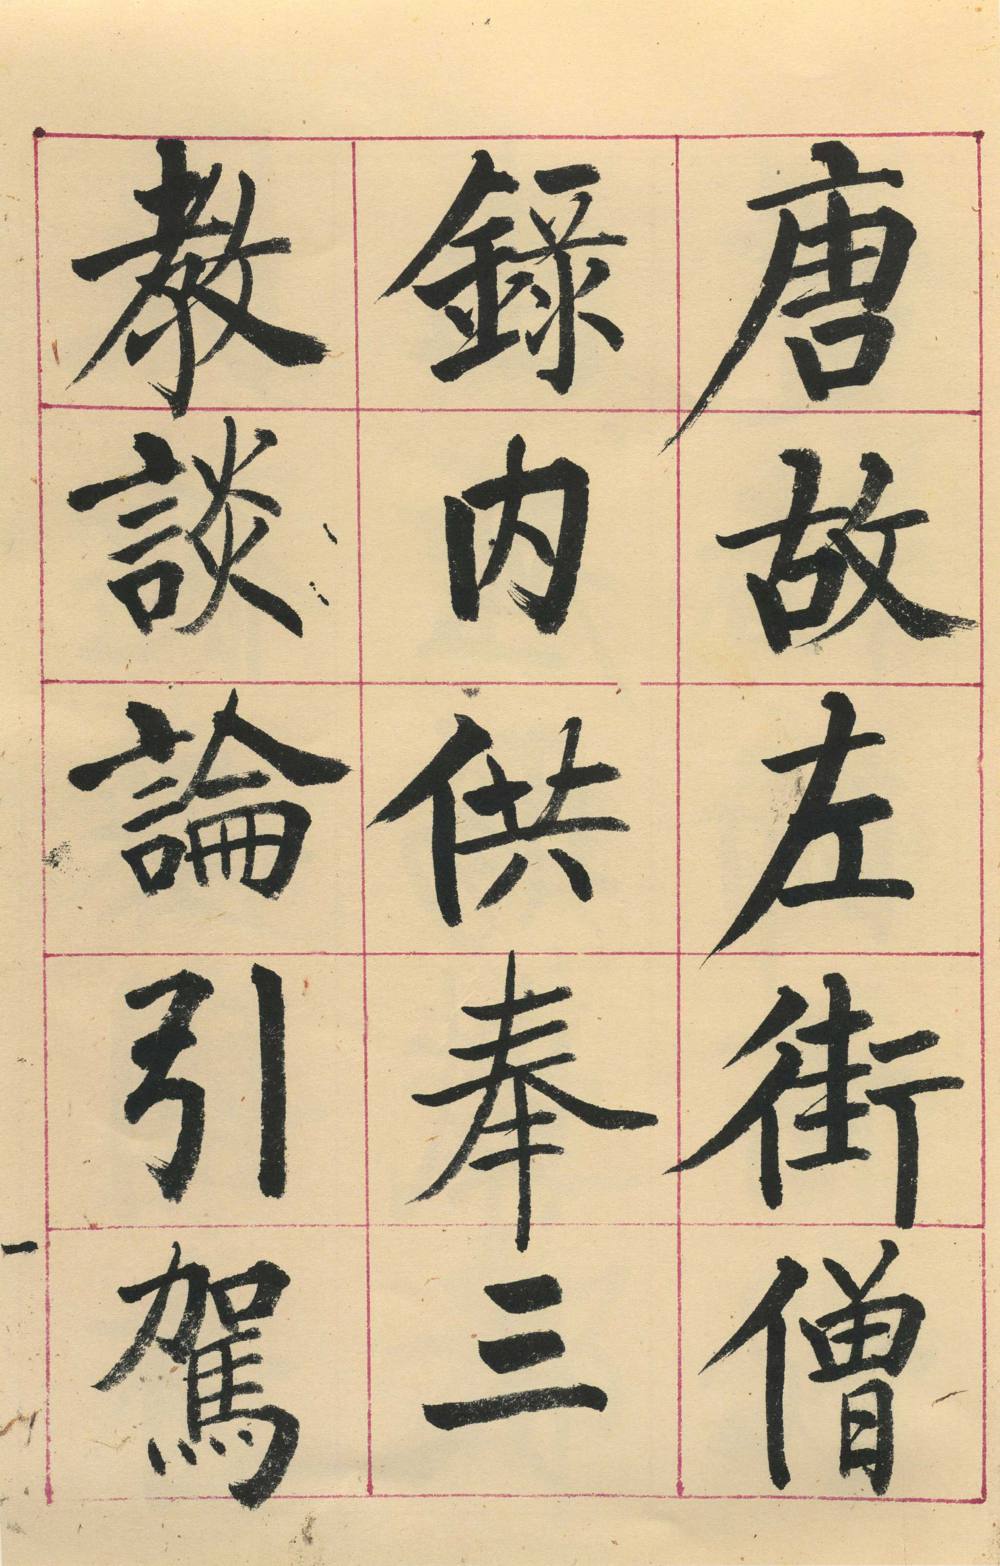 唐故左街僧
錄內供奉三
教談論引駕
一